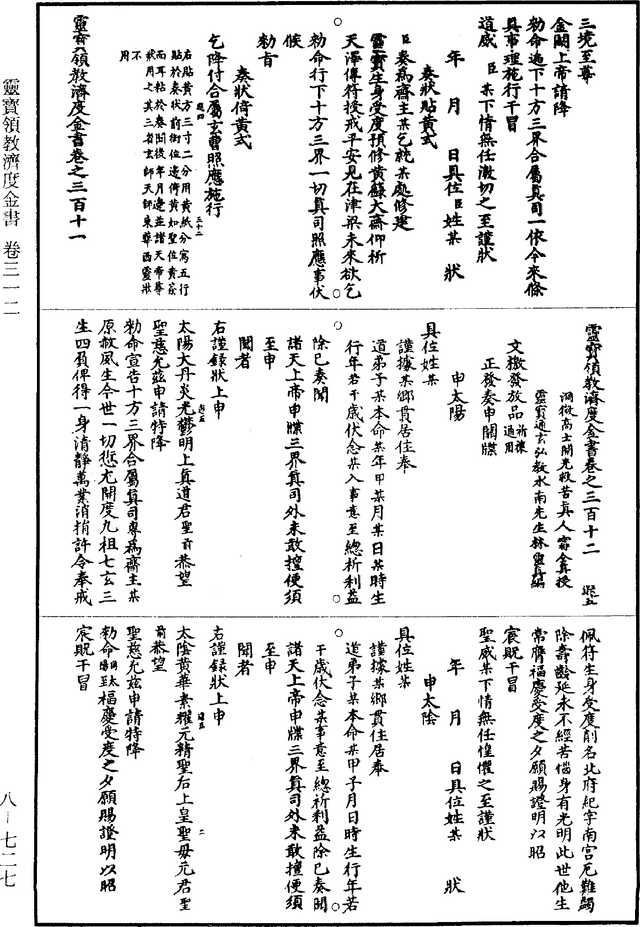 三境至尊
金闕上帝請降
勑命遍下十方三界合屬真司一依今來條
具事理施行干冒
道威臣某下情無任激切之至謹狀
年月日具位臣姓某狀
奏狀貼黃式
臣奏為齋主某乞純某處修建
靈寶生身受度預修黃籙大齋仰祈
天澤傳符授戒平安見在津梁未來欲乞
勑命行下十方三界一切真司照應事伏
候
勑旨
奏狀倚黃式
乞降付合屬玄曹照應施行
右貼黃方三寸二分用黃紙分寫五行
貼於奏狀前銜位邊倚黃如聖位黃籤
而耳粘於奏聞後年月邊並諸天帝尊
狀用之其三省玄師天師東華西靈狀
不用
靈寶領教濟度金書卷之三百十一
靈寶領教濟度金書卷之三百十二
洞微高士開光救苦真人甯全真授
靈寶通玄弘教水南先生林靈真編
文檄發放品祈禳通用
正發奏申關牒
申太陽
具位姓某
謹據某鄉貫居住奉
道弟子某本命某年甲某月某日某時生
行年若干歲伏念某入事意至總祈利益
除已奏聞
諸天上帝申牒三界真司外未敢擅便須
至申
聞者
右謹錄狀上申
太陽大丹炎光鬱明上真道君聖前恭望
聖慈允茲申請特降
勑命宣告十方三界合屬真司專為齋主某
原赦夙生今世一切愆尤開度九祖七玄三
生四負俾得一身清靜萬業消捐許令奉戒
佩符生身受度削名北府紀字南宮厄難蠲
除壽齡延永不經苦惱身有光明此世他生
常膺福慶受度之夕願賜證明以昭
宸貺干冒
聖威某下情無任惶懼之至謹狀
年月日具位姓某狀
申太陰
具位姓某
謹據某鄉貫住居奉
道弟子某本命某甲子月日時生行年若
干歲伏念某事意至總祈利益除已奏聞
諸天上帝申牒三界真司外未敢擅便須
至申
聞者
右謹錄狀上申
太陰黃華素耀元精聖后上皇聖母元君聖
前恭望
聖慈允茲申請特降
勑命同太陽至福慶受度之夕願賜證明以昭
宸貺干冒
靈寶領教濟度金書 卷三一二
八－七二七